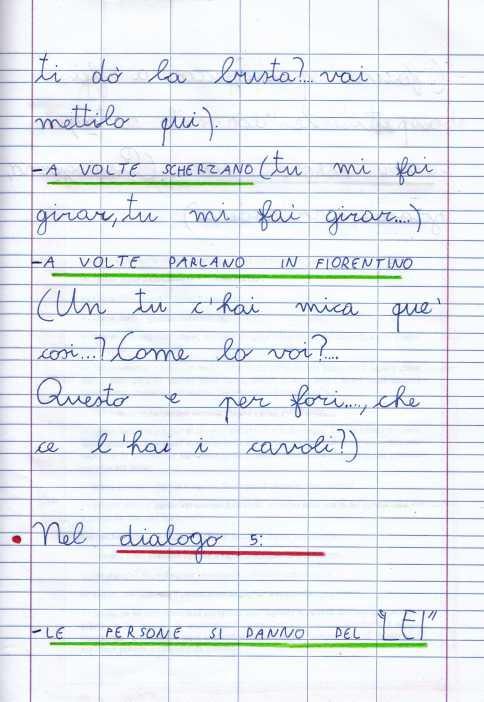 ti dò la busta?... vai
mettilo qui).
-A VOLTE SCHERZANO (tu mi fai
girar, tu mi fai girar....)
-A VOLTE PARLANO IN FIORENTINO
(Un tu c'hai mica que'
cosi...? Come lo voi?....
Questo e per fori...., che
ce l'hai i cavoli?)
• Nel dialogo 5:
-LE PERSONE SI DANNO DEL "LEI"